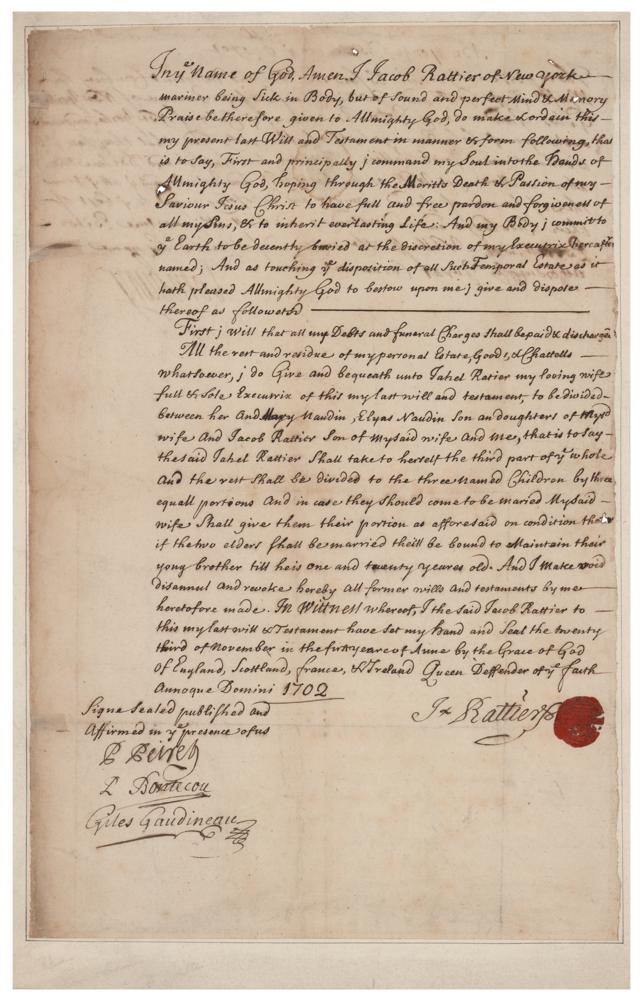 In yͤ Name of God, Amen. I Jacob Rattier of New york
mariner being Sick in Body, but of Sound and perfect Mind & Memory
Praise be therefore given to Allmighty God, do make & ordain this
my present last Will and Testament in manner & form following, that
is to Say, First and principally j command my Soul into the Hands of
Allmighty God, hoping through the Meritts Death & Passion of my
Saviour Jesus Christ to have full and free pardon and forgiveness of
all my Sins, & to inherit everlasting Life: And my Body j commit to
yͤ Earth to be decently buried at the discretion of my Executrix hereafter
named; And as touching yͤ disposition of all Such Temporal Estate as it
hath pleased Allmighty God to bestow upon me; j give and dispose
thereof as followeth
First j Will that all my Debts and funeral Charges Shall be paid & discharged
All the rest and residue of my personal Estate, Goods, & Chattolls
whatsoever, j do Give and bequeath unto Jahel Ratier my loving wife
full & Sole Executrix of this my last will and testament, to be divided
between her And Mary Naudin, Elyas Naudin Son an doughters of my sd
wife And Jacob Rattier Son of my said wife And me, that is to Say
the said Jahel Rattier Shall take to herself the third part of yͤ whole
And the rest Shall be divided to the three named Children by three
equall portions And in case they Should come to be maried My said
wife Shall give them their portion as afforesaid on condition that
if the two elders Shall be married theill be bound to Maintain their
yong brother till he is one and twenty yeares old. And I Make void
disannul And revoke hereby All former wills And testaments by me
heretofore made. In Wittness whereof, I the Said Jacob Rattier to
this my last will & Testament have Set my hand and Seal the twenty
third of November in the first yeare of Anne by the Grace of God
of England, Scottland, france, & Ireland Queen Deffender of yͤ faith
Annoque Domini 1702
Signe Sealed published and
Affirmed in yͤ presence of us
Rattier
P Peiret
Bontecou
Giles Gaudineau